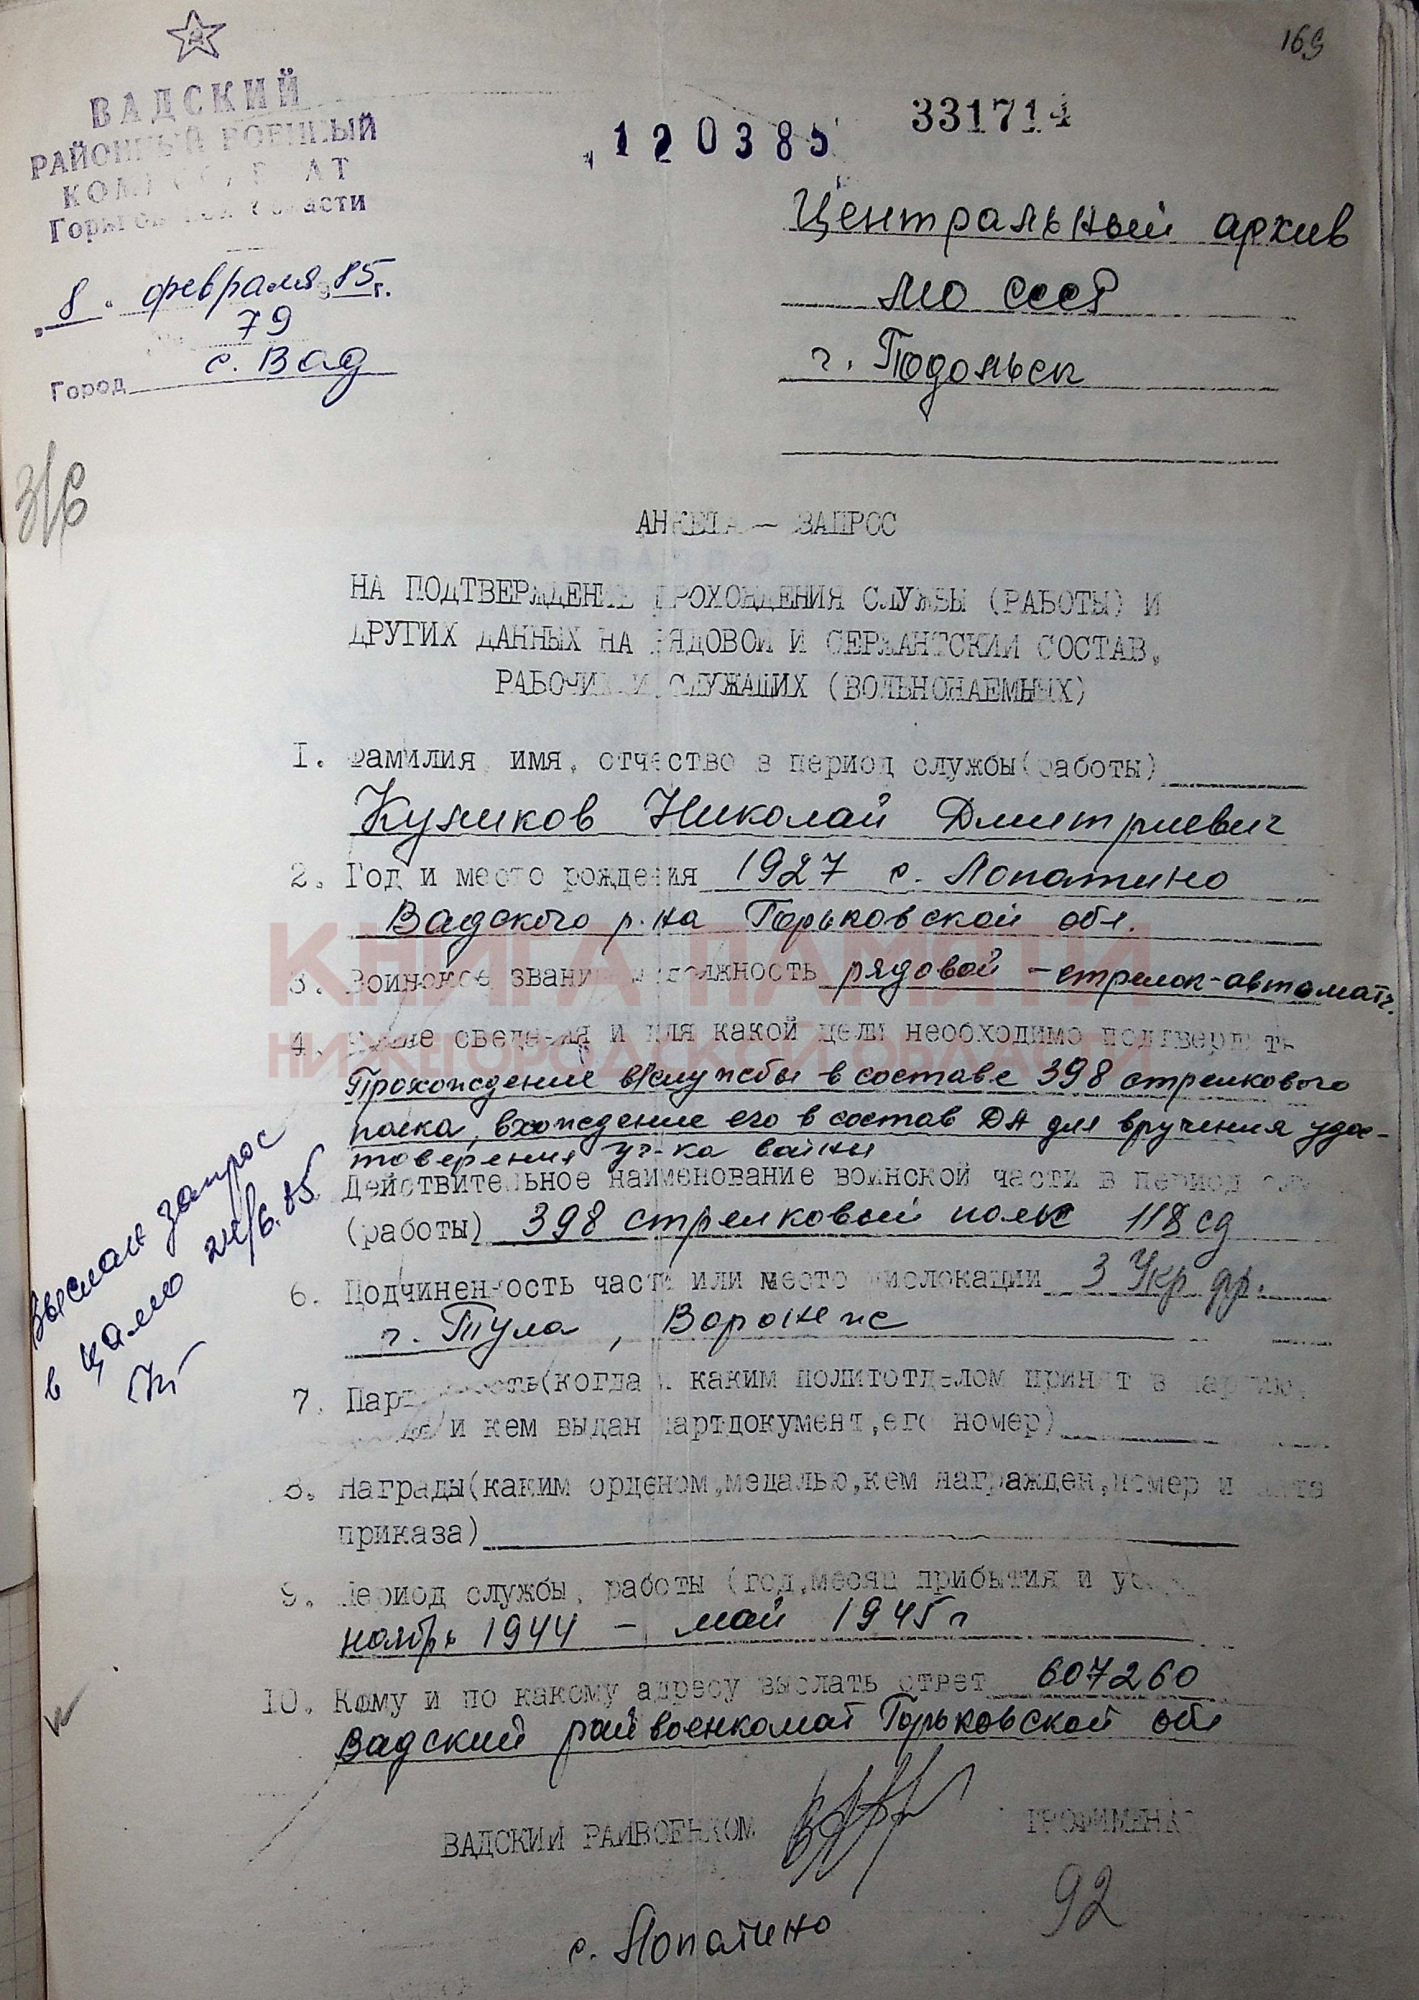 169
ВАДСКИЙ
РАЙОННЫЙ ВОЕННЫЙ
КОМИССАРИАТ
Горьковской области
„8" февраля 85 г.
79
Город с. Вад
120385
331714
Центральный архив
МО СССР
г. Подольск
АНКЕТА — ЗАПРОС
НА ПОДТВЕРЖДЕНИЕ ПРОХОЖДЕНИЯ СЛУЖБЫ (РАБОТЫ) И
ДРУГИХ ДАННЫХ НА РЯДОВОЙ И СЕРЖАНТСКИЙ СОСТАВ,
РАБОЧИХ И СЛУЖАЩИХ (ВОЛЬНОНАЕМНЫХ)
1. Фамилия, имя, отчество в период службы(работы)
Куликов Николай Дмитриевич
2. Год и место рождения 1927 с. Лопатино
Вадского р-на Горьковской обл.
3. Воинское звание и должность рядовой – стрелок-автоматч.
4. Какие сведения и для какой цели необходимо подтвердить
Прохождение в/службы в составе 398 стрелкового
полка, вхождение его в состав ДА для вручения удос-
товерения уч-ка войны
Действительное наименование воинской части в период
(работы) 398 стрелковый полк 118 сд
6. Подчиненность части или место дислокации 3 Укр. фр.
г. Тула, Воронеж
7. Партийность(когда и каким политотделом принят в партию,
и кем выдан партдокумент,его номер)
8. Награды(каким орденом,медалью,кем награжден,номер и дата
приказа)
9. Период службы, работы (год,месяц прибытия и
ноябрь 1944 – май 1945 г
10. Кому и по какому адресу выслать ответ 607260
Вадский райвоенкомат Горьковской обл
ВАДСКИЙ РАЙВОЕНКОМ ТРОФИМЕНКО
92
с. Лопатино
Выслан запрос
в ЦАМО 24/6.85
КНИГА ПАМЯТИ
НИЖЕГОРОДСКОЙ ОБЛАСТИ